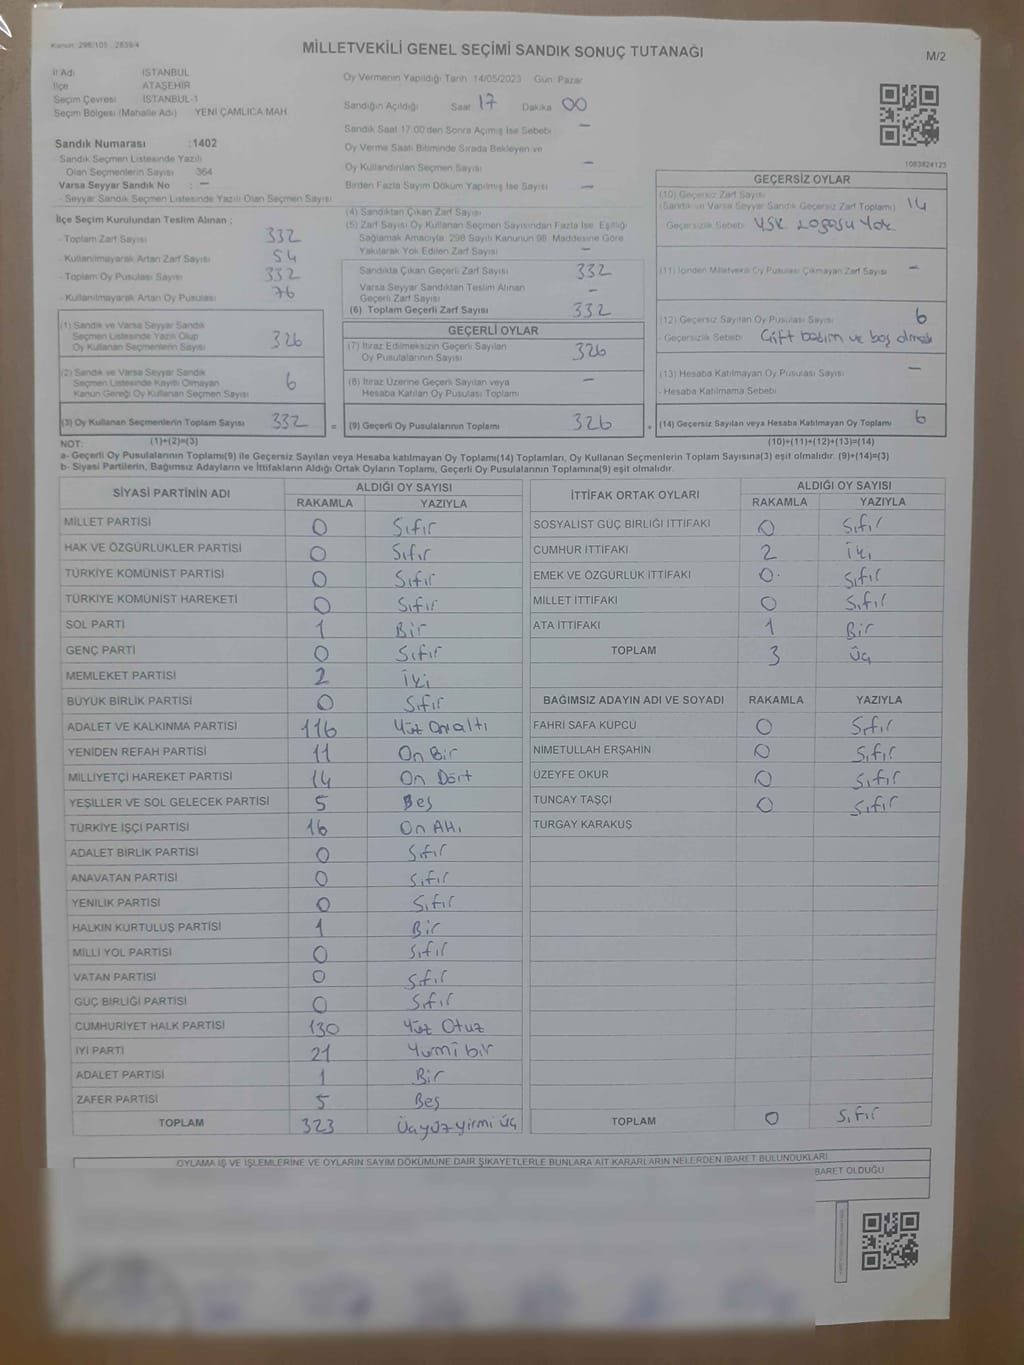 Kanun: 298/105 , 2839/4
MİLLETVEKİLİ GENEL SEÇİMİ SANDIK SONUÇ TUTANAĞI
M/2
İl Adı İSTANBUL
İlçe ATAŞEHİR
Seçim Çevresi İSTANBUL-1
Seçim Bölgesi (Mahalle Adı) YENİ ÇAMLICA MAH
Oy Vermenin Yapıldığı Tarih 14/05/2023 Gün: Pazar
Sandığın Açıldığı Saat 17 Dakika 00
Sandık Saat 17.00'den Sonra Açılmış İse Sebebi —
Oy Verme Saati Bitiminde Sırada Bekleyen ve
Oy Kullandırılan Seçmen Sayısı —
Birden Fazla Sayım Döküm Yapılmış İse Sayısı —
1083824123
Sandık Numarası :1402
- Sandık Seçmen Listesinde Yazılı
Olan Seçmenlerin Sayısı 364
Varsa Seyyar Sandık No : —
- Seyyar Sandık Seçmen Listesinde Yazılı Olan Seçmen Sayısı
İlçe Seçim Kurulundan Teslim Alınan ;
- Toplam Zarf Sayısı 332
- Kullanılmayarak Artan Zarf Sayısı 54
- Toplam Oy Pusulası Sayısı 332
- Kullanılmayarak Artan Oy Pusulası 76
(1) Sandık ve Varsa Seyyar Sandık
Seçmen Listesinde Yazılı Olup
Oy Kullanan Seçmenlerin Sayısı 326
(2) Sandık ve Varsa Seyyar Sandık
Seçmen Listesinde Kayıtlı Olmayan
Kanun Gereği Oy Kullanan Seçmen Sayısı 6
(3) Oy Kullanan Seçmenlerin Toplam Sayısı 332
(4) Sandıktan Çıkan Zarf Sayısı
(5) Zarf Sayısı Oy Kullanan Seçmen Sayısından Fazla İse, Eşitliği
Sağlamak Amacıyla, 298 Sayılı Kanunun 98. Maddesine Göre
Yakılarak Yok Edilen Zarf Sayısı —
Sandıkta Çıkan Geçerli Zarf Sayısı 332
Varsa Seyyar Sandıktan Teslim Alınan
Geçerli Zarf Sayısı —
(6) Toplam Geçerli Zarf Sayısı 332
GEÇERLİ OYLAR
(7) İtiraz Edilmeksizin Geçerli Sayılan
Oy Pusulalarının Sayısı 326
(8) İtiraz Üzerine Geçerli Sayılan veya
Hesaba Katılan Oy Pusulası Toplamı —
= (9) Geçerli Oy Pusulalarının Toplamı 326
GEÇERSİZ OYLAR
(10) Geçersiz Zarf Sayısı
(Sandık ve Varsa Seyyar Sandık Geçersiz Zarf Toplamı) 14
- Geçersizlik Sebebi YSK Logosu Yok
(11) İçinden Milletvekili Oy Pusulası Çıkmayan Zarf Sayısı —
(12) Geçersiz Sayılan Oy Pusulası Sayısı 6
- Geçersizlik Sebebi Çift basım ve boş olması
(13) Hesaba Katılmayan Oy Pusulası Sayısı —
- Hesaba Katılmama Sebebi
+ (14) Geçersiz Sayılan veya Hesaba Katılmayan Oy Toplamı 6
NOT: (1)+(2)=(3) (10)+(11)+(12)+(13)=(14)
a- Geçerli Oy Pusulalarının Toplamı(9) ile Geçersiz Sayılan veya Hesaba katılmayan Oy Toplamı(14) Toplamları, Oy Kullanan Seçmenlerin Toplam Sayısına(3) eşit olmalıdır. (9)+(14)=(3)
b- Siyasi Partilerin, Bağımsız Adayların ve İttifakların Aldığı Ortak Oyların Toplamı, Geçerli Oy Pusulalarının Toplamına(9) eşit olmalıdır.
SİYASİ PARTİNİN ADI ALDIĞI OY SAYISI
RAKAMLA YAZIYLA
MİLLET PARTİSİ 0 Sıfır
HAK VE ÖZGÜRLÜKLER PARTİSİ 0 Sıfır
TÜRKİYE KOMÜNİST PARTİSİ 0 Sıfır
TÜRKİYE KOMÜNİST HAREKETİ 0 Sıfır
SOL PARTİ 1 Bir
GENÇ PARTİ 0 Sıfır
MEMLEKET PARTİSİ 2 İki
BÜYÜK BİRLİK PARTİSİ 0 Sıfır
ADALET VE KALKINMA PARTİSİ 116 Yüz Onaltı
YENİDEN REFAH PARTİSİ 11 On Bir
MİLLİYETÇİ HAREKET PARTİSİ 14 On Dört
YEŞİLLER VE SOL GELECEK PARTİSİ 5 Beş
TÜRKİYE İŞÇİ PARTİSİ 16 On Altı
ADALET BİRLİK PARTİSİ 0 Sıfır
ANAVATAN PARTİSİ 0 Sıfır
YENİLİK PARTİSİ 0 Sıfır
HALKIN KURTULUŞ PARTİSİ 1 Bir
MİLLİ YOL PARTİSİ 0 Sıfır
VATAN PARTİSİ 0 Sıfır
GÜÇ BİRLİĞİ PARTİSİ 0 Sıfır
CUMHURİYET HALK PARTİSİ 130 Yüz Otuz
İYİ PARTİ 21 Yirmi bir
ADALET PARTİSİ 1 Bir
ZAFER PARTİSİ 5 Beş
TOPLAM 323 Üçyüzyirmi üç
İTTİFAK ORTAK OYLARI ALDIĞI OY SAYISI
RAKAMLA YAZIYLA
SOSYALİST GÜÇ BİRLİĞİ İTTİFAKI 0 Sıfır
CUMHUR İTTİFAKI 2 İki
EMEK VE ÖZGÜRLÜK İTTİFAKI 0 Sıfır
MİLLET İTTİFAKI 0 Sıfır
ATA İTTİFAKI 1 Bir
TOPLAM 3 Üç
BAĞIMSIZ ADAYIN ADI VE SOYADI RAKAMLA YAZIYLA
FAHRİ SAFA KÜPCÜ 0 Sıfır
NİMETULLAH ERŞAHİN 0 Sıfır
ÜZEYFE OKUR 0 Sıfır
TUNCAY TAŞÇI 0 Sıfır
TURGAY KARAKUŞ
TOPLAM 0 Sıfır
OYLAMA İŞ VE İŞLEMLERİNE VE OYLARIN SAYIM DÖKÜMÜNE DAİR ŞİKAYETLERLE BUNLARA AİT KARARLARIN NELERDEN İBARET BULUNDUKLARI
İBARET OLDUĞU